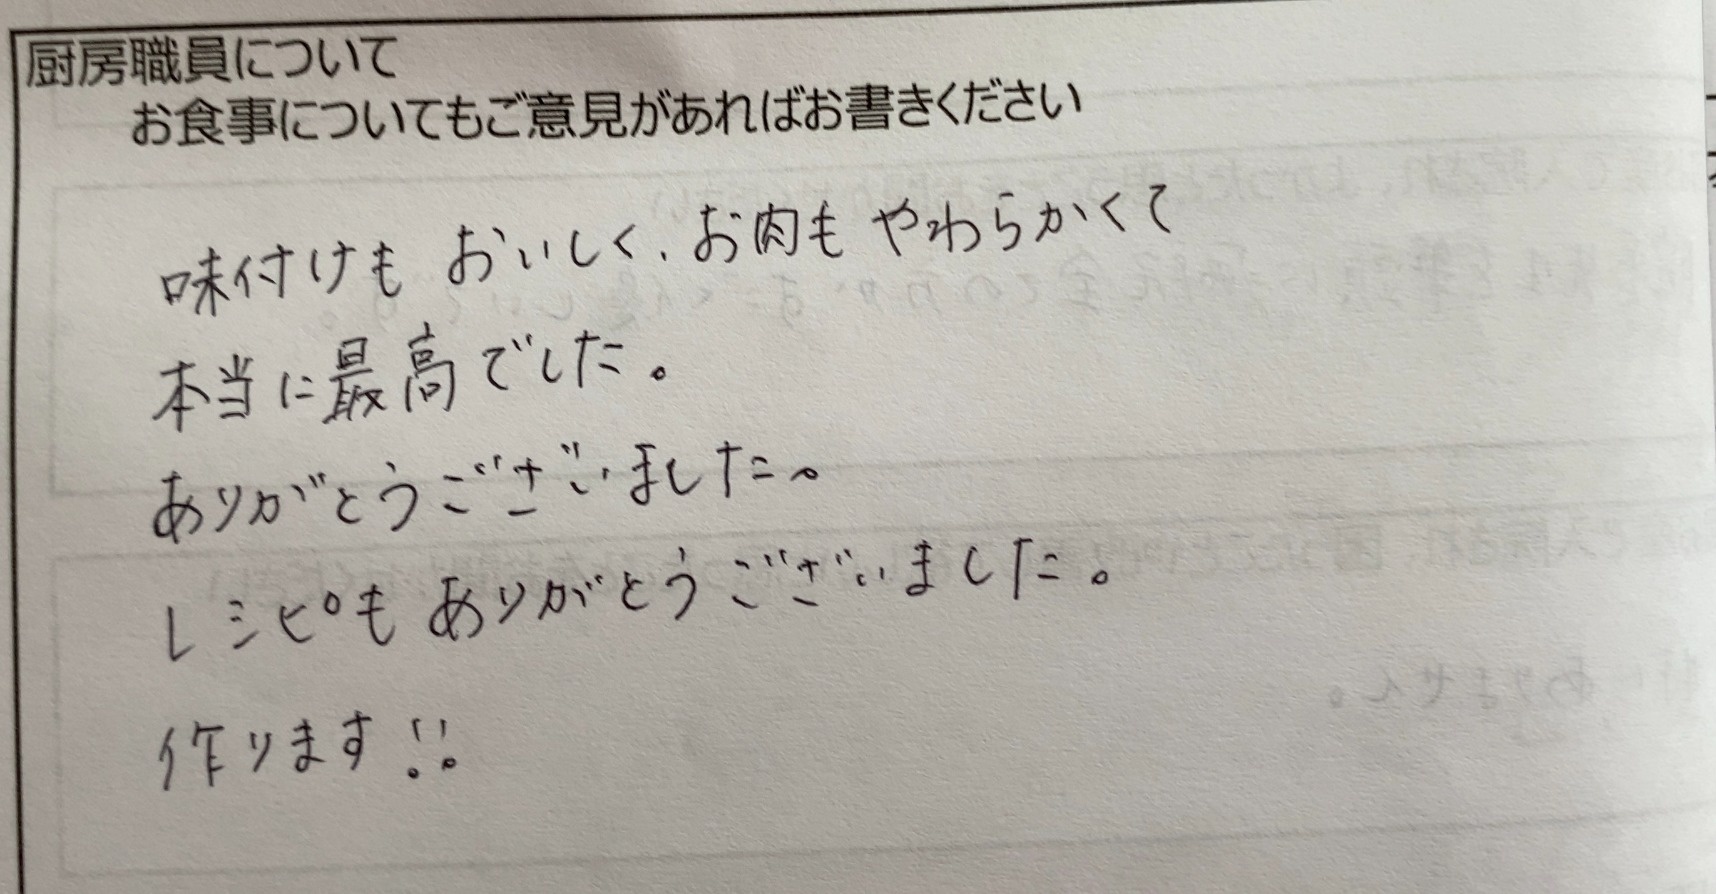 厨房職員について
お食事についてもご意見があればお書きください
味付けも おいしく、お肉も やわらかくて
本当に最高でした。
ありがとうございました。
レシピも ありがとうございました。
作ります!!